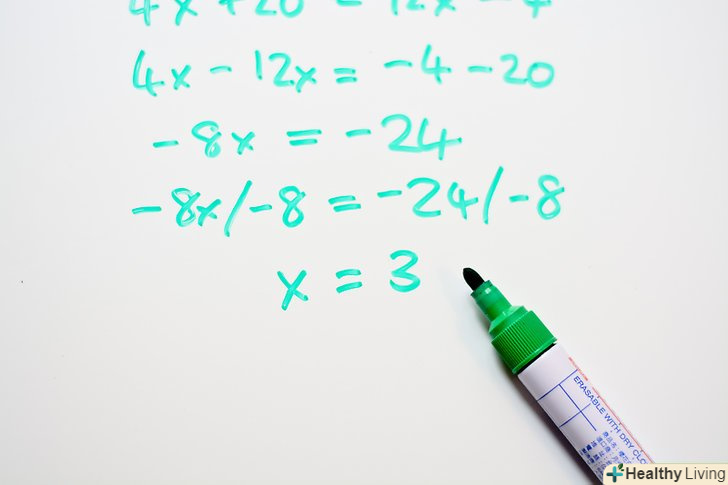 4x + 20 = 12x - 4
4x - 12x = -4 - 20
-8x = -24
-8x/-8 = -24/-8
x = 3
ERASABLE WITH DRY CLO
Healthy Living